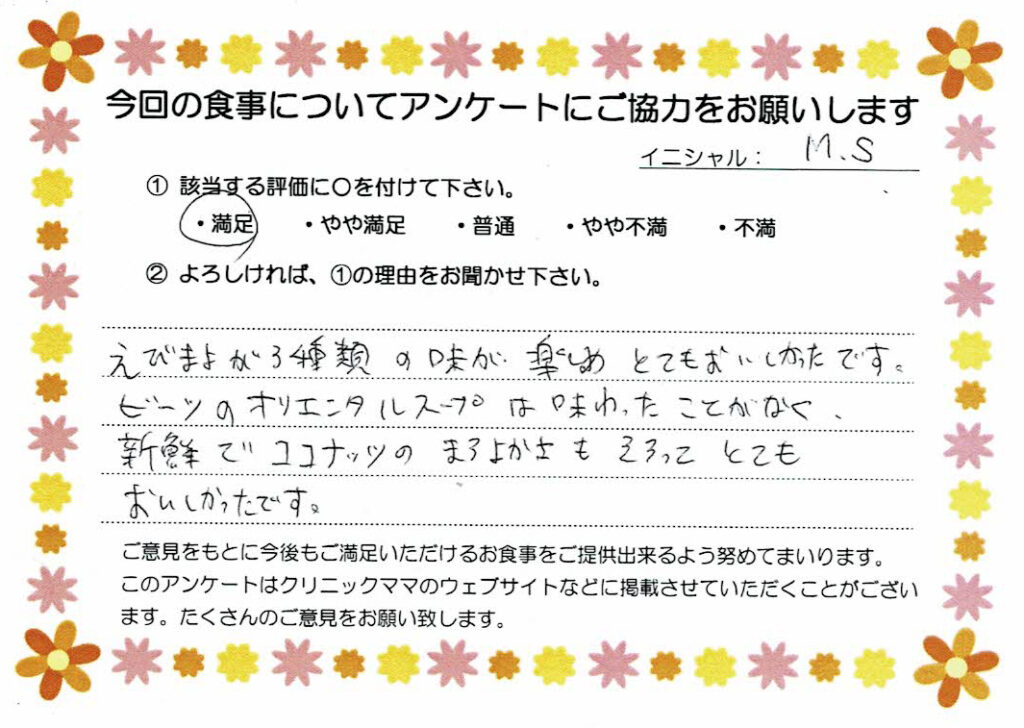 今回の食事についてアンケートにご協力をお願いします
イニシャル： M.S
① 該当する評価に〇を付けて下さい。
・満足 ・やや満足 ・普通 ・やや不満 ・不満
② よろしければ、①の理由をお聞かせ下さい。
えびまよが3種類の味が楽しめとてもおいしかったです。
ビーツのオリエンタルスープは味わったことがなく、
新鮮でココナッツのまろよかさもそろってとても
おいしかったです。
ご意見をもとに今後もご満足いただけるお食事をご提供出来るよう努めてまいります。
このアンケートはクリニックママのウェブサイトなどに掲載させていただくことがござい
ます。たくさんのご意見をお願い致します。